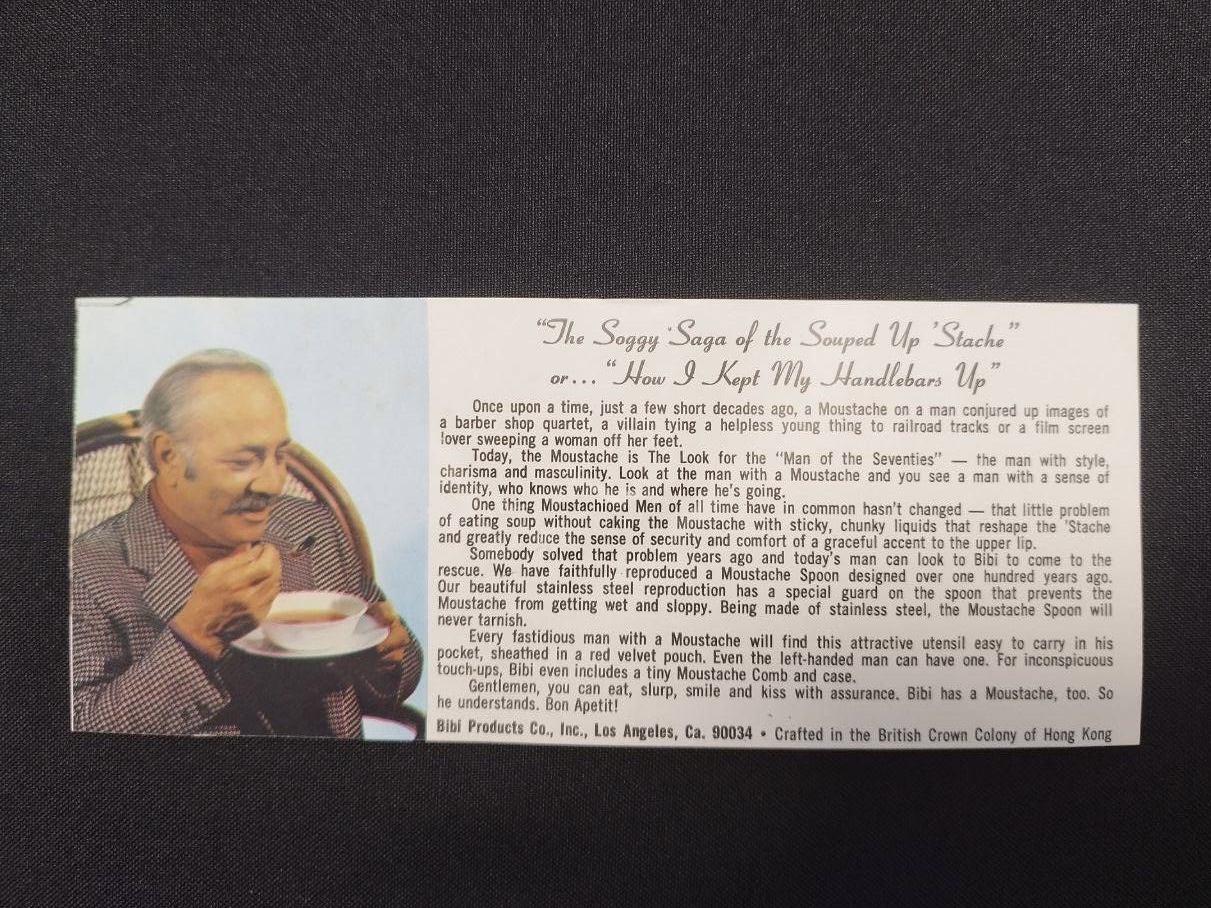 “The Soggy Saga of the Souped Up 'Stache”
or... “How I Kept My Handlebars Up”
Once upon a time, just a few short decades ago, a Moustache on a man conjured up images of
a barber shop quartet, a villain tying a helpless young thing to railroad tracks or a film screen
lover sweeping a woman off her feet.
Today, the Moustache is The Look for the “Man of the Seventies” — the man with style,
charisma and masculinity. Look at the man with a Moustache and you see a man with a sense of
identity, who knows who he is and where he's going.
One thing Moustachioed Men of all time have in common hasn't changed — that little problem
of eating soup without caking the Moustache with sticky, chunky liquids that reshape the 'Stache
and greatly reduce the sense of security and comfort of a graceful accent to the upper lip.
Somebody solved that problem years ago and today's man can look to Bibi to come to the
rescue. We have faithfully reproduced a Moustache Spoon designed over one hundred years ago.
Our beautiful stainless steel reproduction has a special guard on the spoon that prevents the
Moustache from getting wet and sloppy. Being made of stainless steel, the Moustache Spoon will
never tarnish.
Every fastidious man with a Moustache will find this attractive utensil easy to carry in his
pocket, sheathed in a red velvet pouch. Even the left-handed man can have one. For inconspicuous
touch-ups, Bibi even includes a tiny Moustache Comb and case.
Gentlemen, you can eat, slurp, smile and kiss with assurance. Bibi has a Moustache, too. So
he understands. Bon Apetit!
Bibi Products Co., Inc., Los Angeles, Ca. 90034 • Crafted in the British Crown Colony of Hong Kong